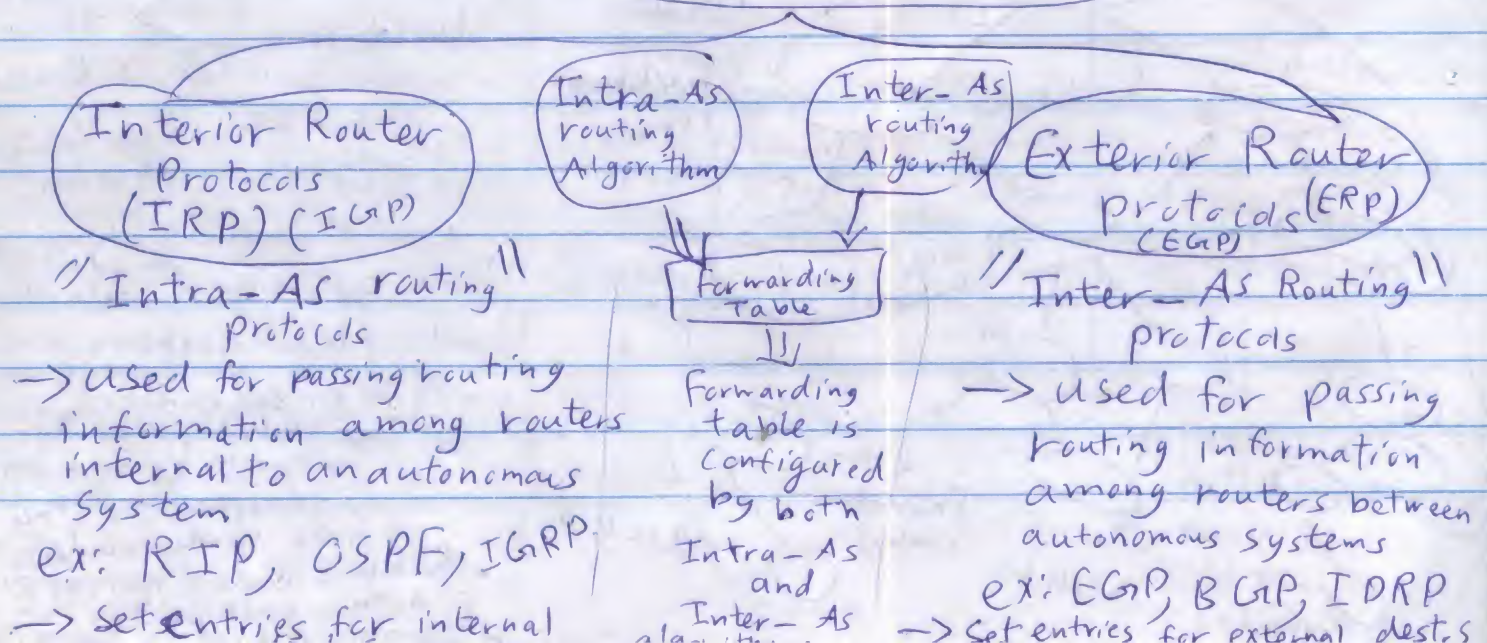 Interior Router
Protocols
(IRP) (IGP)
"Intra-AS routing"
protocols
-> used for passing routing
information among routers
internal to an autonomous
system
ex: RIP, OSPF, IGRP.
-> Set entries for internal
Intra-As
routing
Algorithm
Inter-As
routing
Algorithm
Forwarding
Table
Forwarding
table is
configured
by both
Intra-As
and
Inter-As
Exterior Router
protocols (ERP)
(EGP)
"Inter-As Routing"
protocols
-> used for passing
routing information
among routers between
autonomous systems
ex: EGP, BGP, IDRP
-> Set entries for external dests